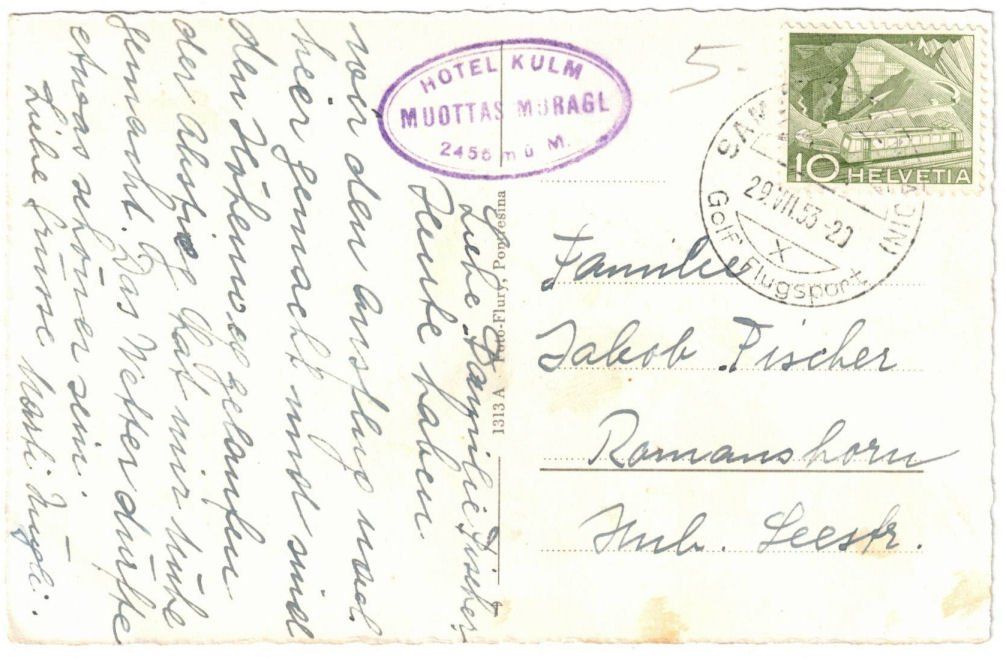 Liebe Familie Fischer,
Heute haben
wir den Ausflug nach
hier gemacht und sind
den Höhenweg gelaufen
der Abstieg hat mir Mühe
gemacht. Das Wetter dürfte
etwas schöner sein.
Liebe Grüsse
HOTEL KULM
MUOTTAS MURAGL
2456 m ü M.
1313 A Foto-Flury, Pontresina
5.-
10 HELVETIA
29.VII.53-20
X
Golf Flugsport
Familie
Jakob Fischer
Romanshorn
Seestr.